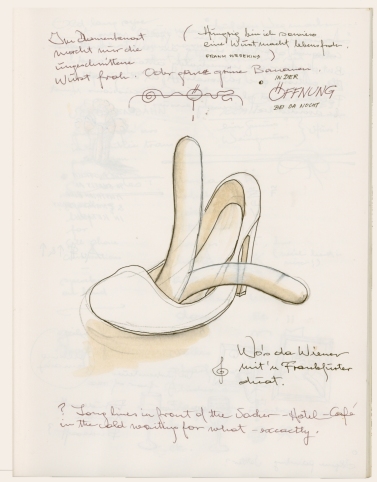 Im Damenbenast
macht mir die
ungeschnittene
Wurst froh. Oder ganze grüne Bananen.
( Hungrig bin ich sowieso
eine Wurst macht lebensfroh.
)
IN DER
ÖFFNUNG
BEI DA NOCHT
Wo's da Wiener
mit'n Frankfurter
duat.
? Long lines in front of the Sacher-Hotel-Café
in the cold waiting for what - exactly.